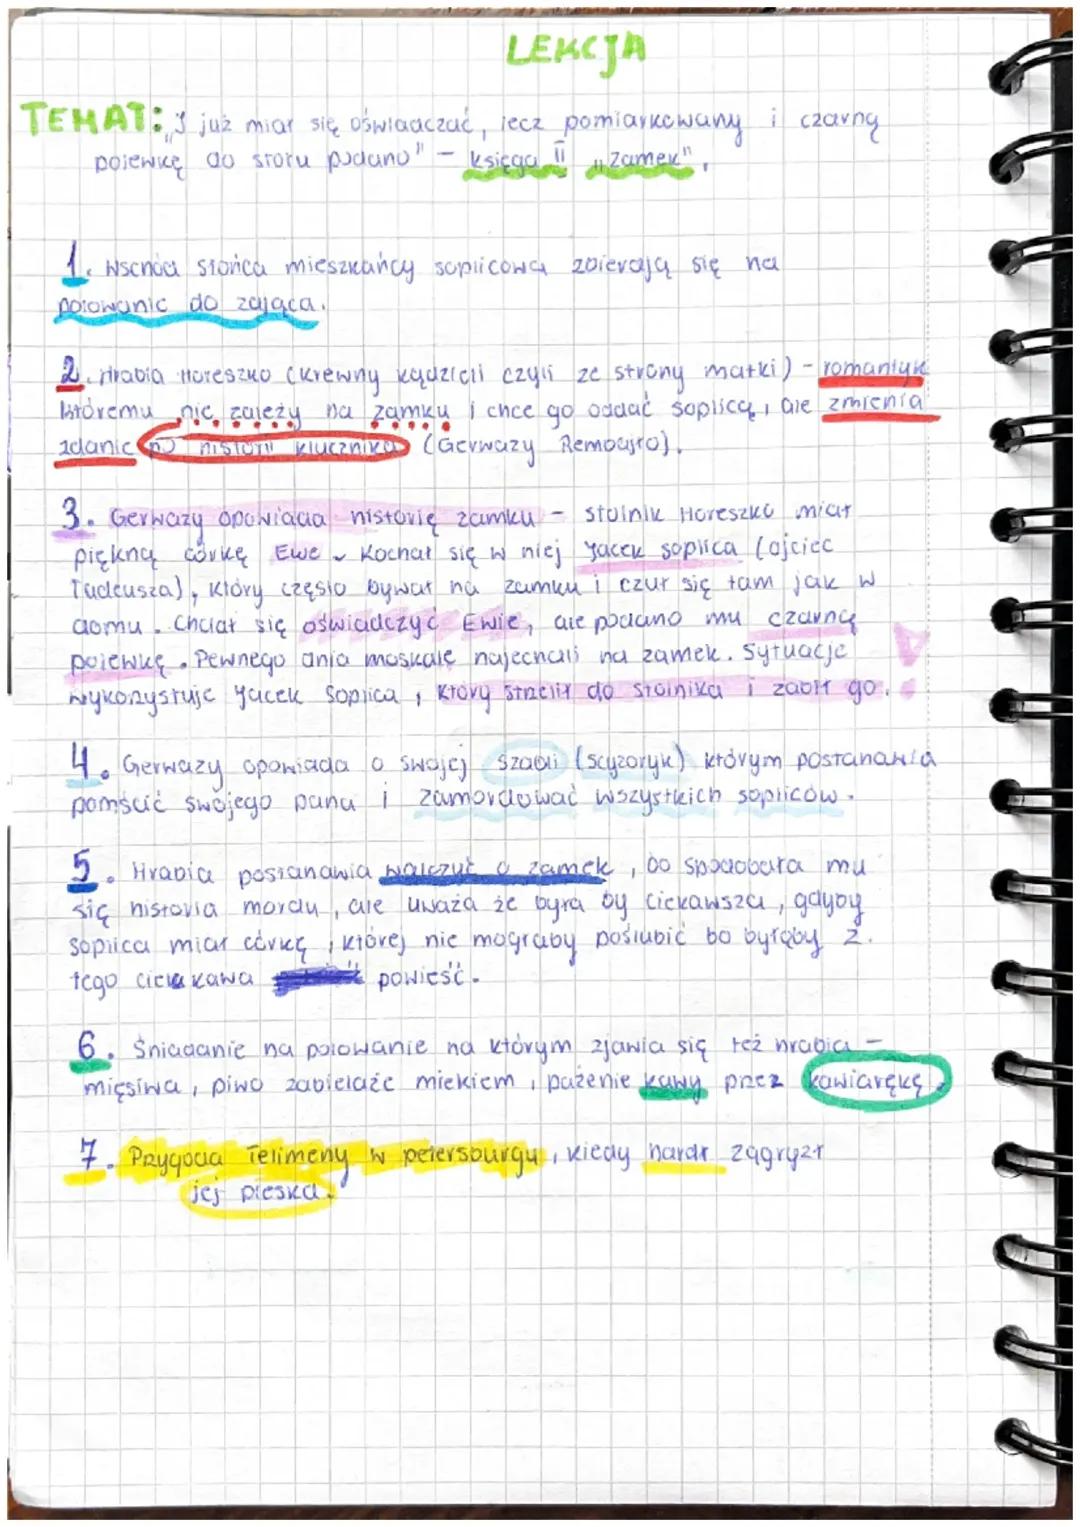 LEKCJA
TEMAT: "I już miał się oświadczać, lecz pomiarkowany i czarną
polewkę do stołu podano" – księga II "Zamek".
1. Wschód słońca mieszkańcy soplicowa zbierają się na
polowanie do zająca.
2. Hrabia Horeszko (krewny kądzieli czyli ze strony matki) – romantyk
któremu nic zależy na zamku i chce go oddać soplicą, ale zmienia
zdanie po historii klucznika (Gerwazy Rembajło).
3. Gerwazy opowiada historię zamku – stolnik Horeszko miał
piękną córkę Ewe. Kochał się w niej Jacek soplica (ojciec
Tadeusza), który często bywał na zamku i czuł się tam jak w
domu. Chciał się oświadczyć Ewie, ale podano mu czarną
polewkę. Pewnego dnia moskale najechali na zamek. Sytuacje
wykorzystuje Jacek Soplica, który strzelił do stolnika i zabił go.
4. Gerwazy opowiada o swojej szabli (scyzoryk) którym postanawia
pomścić swojego pana i zamordować wszystkich sopliców.
5. Hrabia postanawia walczyć o zamek, bo spodobała mu
się historia mordu, ale uważa że była by ciekawsza, gdyby
soplica miał córkę, której nie mógłaby poślubić bo byłaby z
tego ciekawa powieść.
6. Śniadanie na polowanie na którym zjawia się też hrabia –
mięsiwa, piwo zabielaże mlekiem, pażenie kawy przez kawiarękę.
7. Przygoda Telimeny w petersburgu, kiedy hardr zagryzł
jej pieska.